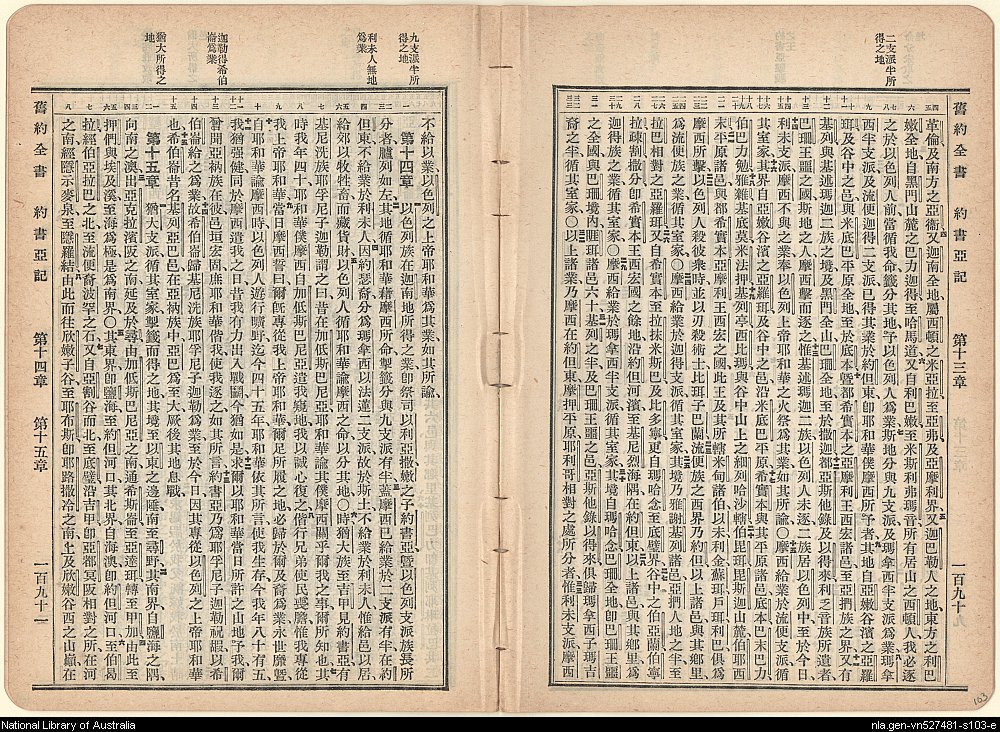 舊約全書 約書亞記 第十三章
二支派半所得之地
革倫及南方之亞衞又迦南全地屬西頓之米亞拉至亞弗及亞摩利界又迦巴勒人之地東方之利巴
嫩全地自黑門山麓之巴力迦得至哈馬道又自利巴嫩至米斯利弗瑪音所有居山之西頓人我必逐
之於以色列人前當循我命籤分其地予以色列人爲業斯地分與九支派及瑪拿西半支派爲業瑪拿
西半支派及流便迦得二支派已得其業於約但東卽耶和華僕摩西所予者其地自亞嫩谷濱之亞羅
珥及谷中之邑與米底巴平原全地至於底本曁都希實本之亞摩利王西宏諸邑至亞捫族之界又有
基列與基述瑪迦二族之境及黑門全山巴珊全地至於撒迦都亞斯他錄及以得來利乏音族所遺者
巴珊王噩之國斯地之人摩西擊而逐之惟基述瑪迦二族以色列人未逐二族居以色列中至於今日
利未支派摩西不與之業奉以色列上帝耶和華之火祭爲其業如其所諭〇摩西給業於流便支派循
其室家其界自亞嫩谷濱之亞羅珥及谷中之邑沿米底巴平原希實本與其平原諸邑底本巴末巴力
伯巴力勉雅雜基底莫米法押基列亭西比瑪與谷中山上之細列哈沙轄伯毘珥毘斯迦山麓伯耶西
末平原諸邑與都希實本亞摩利王西宏之國此王及其所轄米甸諸伯以未利金蘇珥戶珥利巴俱爲
摩西所擊以色列人殺彼衆時並以刃殺術士比珥子巴蘭流便族之西界乃約但以上諸邑與其鄉里
爲流便族之業循其室家〇摩西給業於迦得支派循其室家其境乃雅謝基列諸邑亞捫人地之半至
拉巴相對之亞羅珥又自希實本至拉抹米斯巴及比多寧更自瑪哈念至底壁界谷中之伯亞蘭伯寧
拉疎割撒分卽希實本王西宏國之餘地沿約但河濱至基尼烈海隅在約但東以上諸邑與其鄉里爲
迦得族之業循其室家〇摩西給業於瑪拿西半支派循其室家其境自瑪哈念巴珊全地卽巴珊王噩
之全國與巴珊境內睚珥諸邑六十基列之半及巴珊王噩之邑亞斯他錄以得來俱歸瑪拿西子瑪吉
裔之半循其室家〇以上諸業乃摩西在約但東摩押平原耶利哥相對之處所分者惟利未支派摩西
九支派半所得之地
利未人無地爲業
迦勒得希伯崙爲業
猶大所得之地
不給以業以色列之上帝耶和華爲其業如其所諭
第十四章 以色列族在迦南地所得之業卽祭司以利亞撒嫩之子約書亞曁以色列支派族長所
分者臚列如左其地循耶和華藉摩西所命掣籤分與九支派有半蓋摩西已給業於二支派有半在居
但東不給業於利未人因約瑟裔分爲瑪拿西以法蓮二支派故於斯土不給業於利未人惟給邑以居
給郊以牧牲畜而藏貨財以色列人循耶和華諭摩西之命以分其地〇時猶大族至吉甲見約書亞有
基尼洗族耶孚尼子迦勒謂之曰昔在加低斯巴尼亞耶和華諭其僕摩西關乎爾我之事爾所知也其
時我年四十耶和華僕摩西自加低斯巴尼亞遣我窺地我以誠心復之偕行兄弟使民喪膽惟我專從
我上帝耶和華當日摩西誓曰爾旣專從我上帝耶和華爾足所履之地必歸於爾及裔爲業永世靡曁
自耶和華諭摩西時以色列人遊行曠野迄今四十五年耶和華依其所言使我生存今我年八十有五
我猶强健同於摩西遣我之日昔我有力出入戰鬬今猶如是求爾以耶和華當日所許之山地予我爾
曾聞亞衲族在彼邑垣宏固庶耶和華偕我使我逐之如其所言約書亞乃爲耶孚尼子迦勒祝嘏以希
伯崙給之爲業故希伯崙歸基尼洗族耶孚尼子迦勒爲業至於今日因其專從以色列之上帝耶和華
也希伯崙昔名基列亞巴邑在亞衲族中亞巴爲至大厥後其地息戰
第十五章 猶大支派循其室家掣籤而得之地其境至以東之邊陲南至尋野其南界自鹽海之隅
向南之澳出亞克拉濱阪之南延及於尋由加低斯巴尼亞之南通希斯崙至亞達珥轉至甲加由此至
押們與埃及溪至海爲極是爲南界〇其東界卽鹽海至約但河口其北界自海澳卽約但河口至伯曷
拉經伯亞拉巴之北至流便裔波罕之石又自亞割谷而北至底璧沿吉甲卽亞都冥阪相對之所在河
之南經隱示麥泉至隱羅結由此而往欣嫩子谷至耶布斯卽耶路撒冷之南上及欣嫩谷西之山巔在
舊約全書 約書亞記 第十四章 第十五章
163
National Library of Australia
nla.gen-vn527481-s103-e